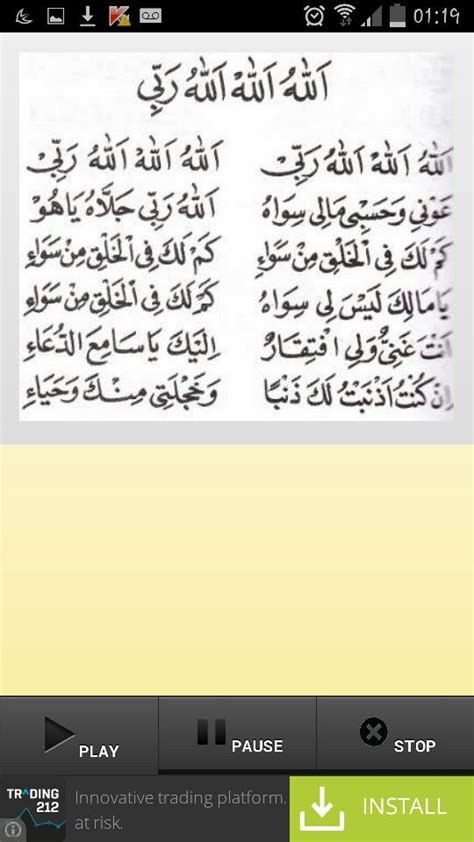 01:19
اَللهُ اَللهُ اَللهُ رَبِّي
اَللهُ اَللهُ اَللهُ رَبِّيْ اَللهُ اَللهُ اَللهُ رَبِّيْ
عَوْنِي وَحَسْبِى مَالِى سِوَاهُ اَللهُ رَبِّيْ جَلَاهُ يَاهُوْ
كَمْ لَكَ فِى الْخَلْقِ مِنْ سَوَاءٍ كَمْ لَكَ فِى الْخَلْقِ مِنْ سَوَاءٍ
يَامَالِكَ لَيْسَ لِى سِوَاهُ كَمْ لَكَ فِى الْخَلْقِ مِنْ سَوَاءٍ
اَنْتَ غَنِيٌّ وَلِى افْتِقَارٌ اِلَيْكَ يَاسَامِعَ الدُّعَاءِ
اِنْ كُنْتُ اَذْنَبْتُ لَكَ ذَنْبًا وَخَجْلَتِى مِنْكَ وَحَيَاءِ
PLAY PAUSE STOP
TRADING 212 Innovative trading platform. at risk. INSTALL